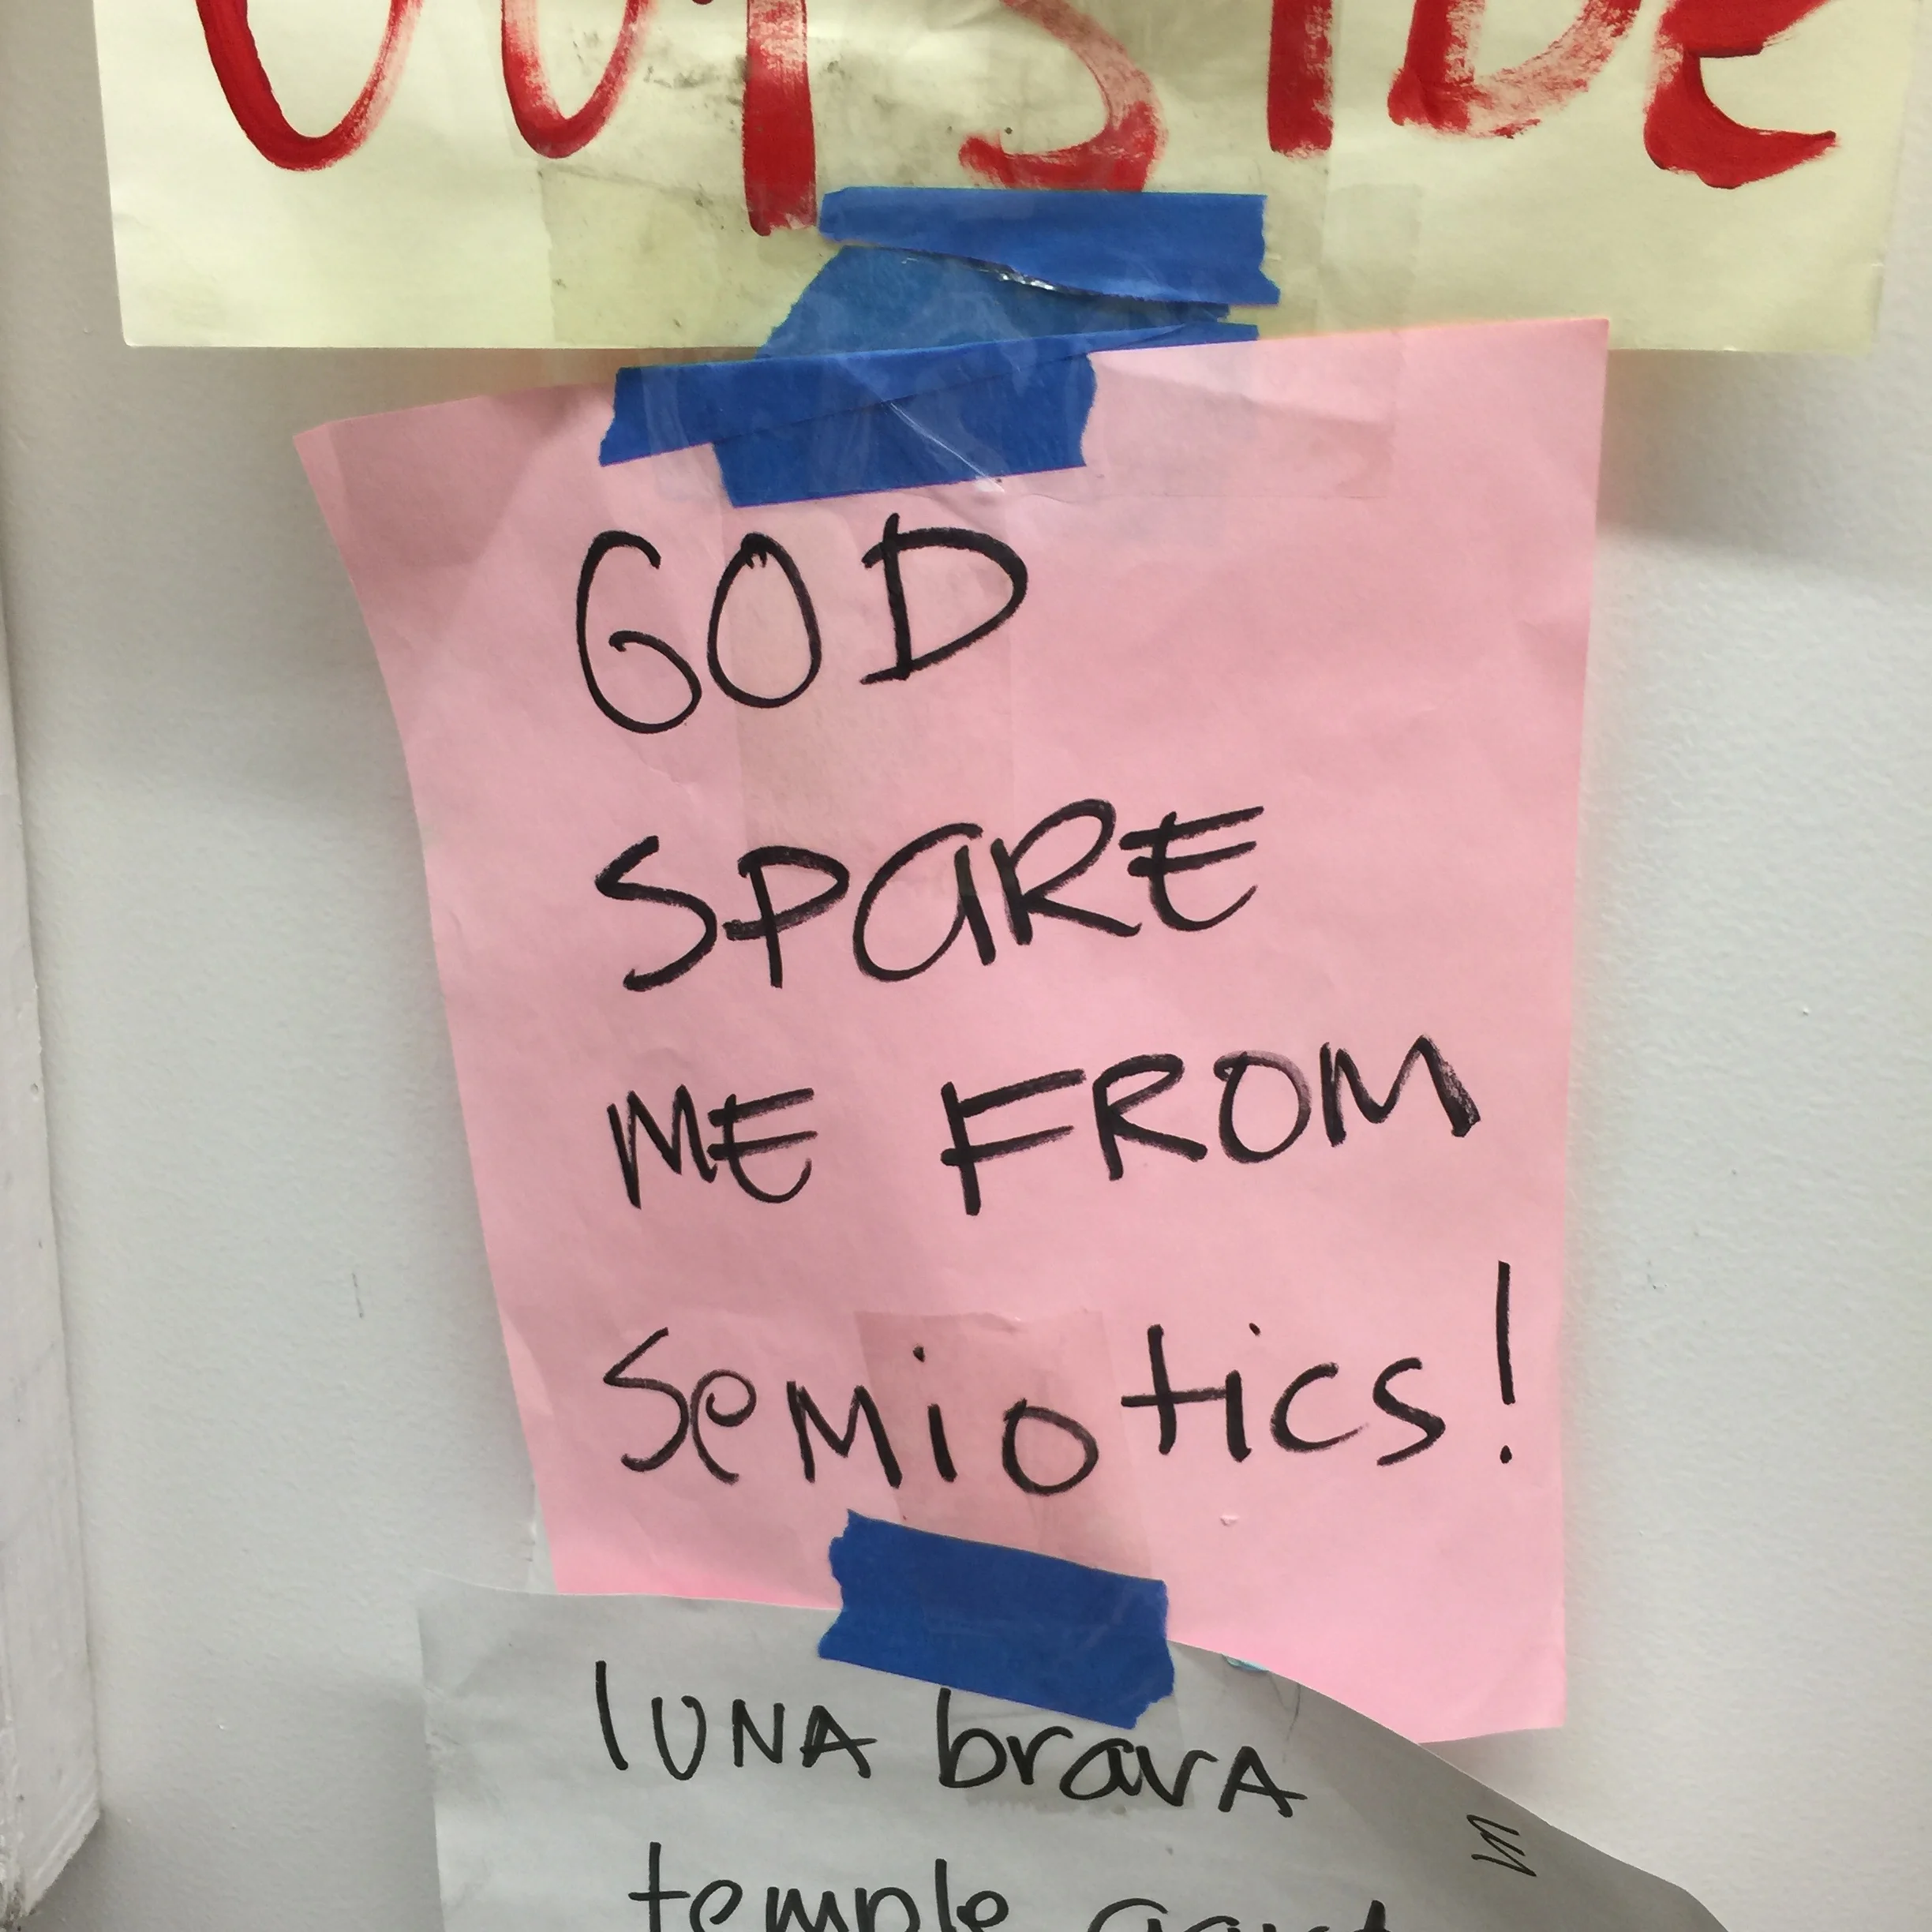 OUTSIDE
GOD
SPARE
ME FROM
Semiotics!
lUNA bravA
temple